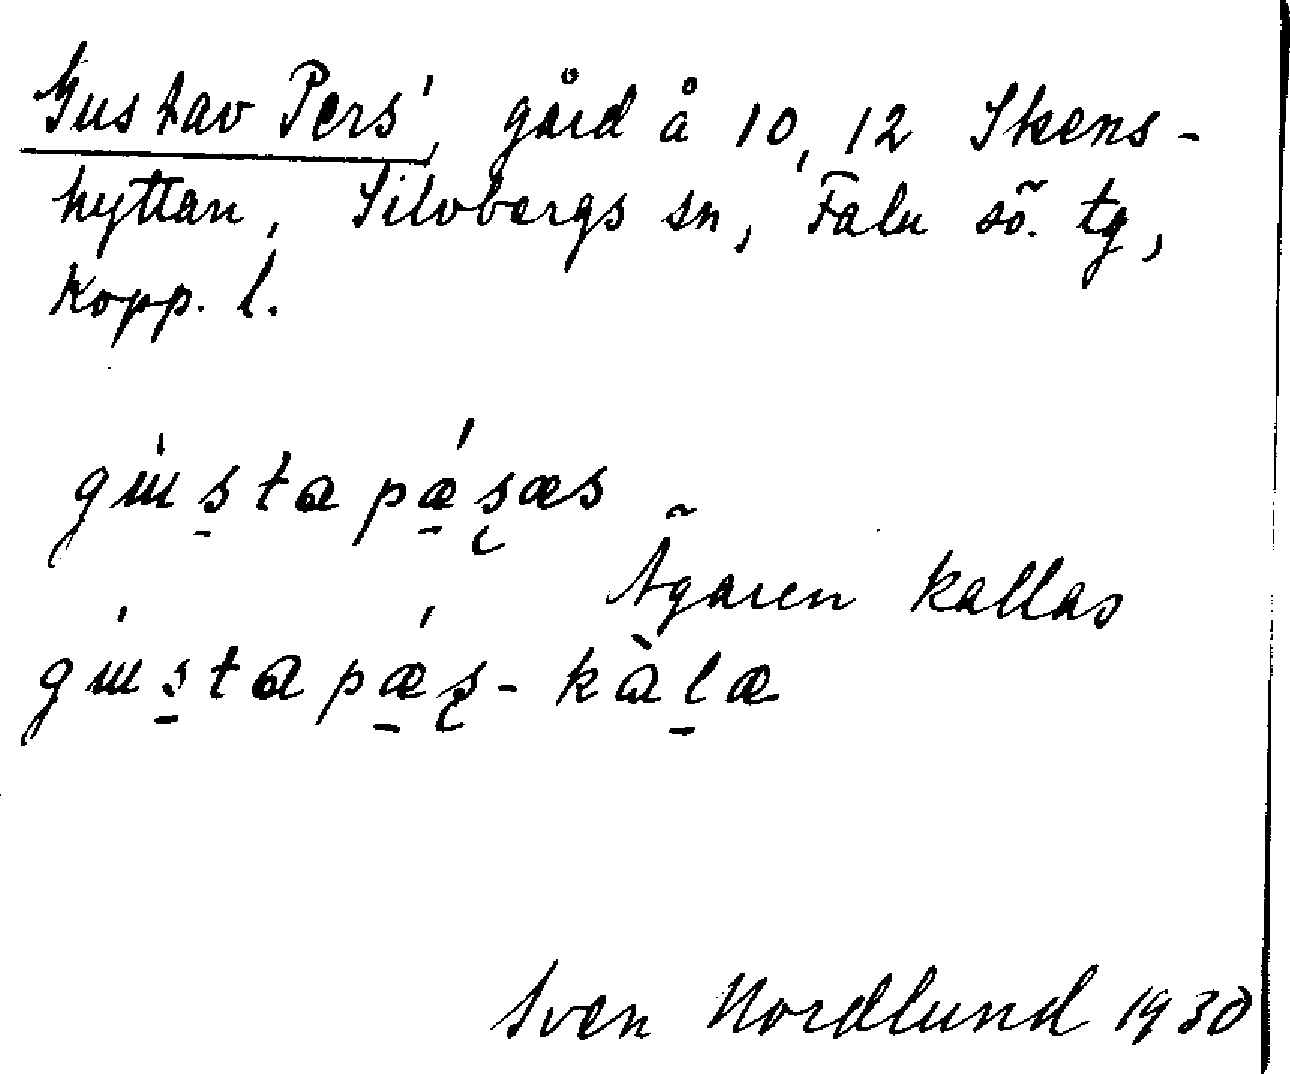 Gustav Pers', gård å 10, 12 Skens-
hyttan, Silvbergs sn, Falu sö. tg,
Kopp. l.
gɯ́s̠tapǽ̠ʂæs
Ägaren kallas
gɯ́s̠tapǽ̠ʂ-kàl̠æ
Sven Nordlund 1930